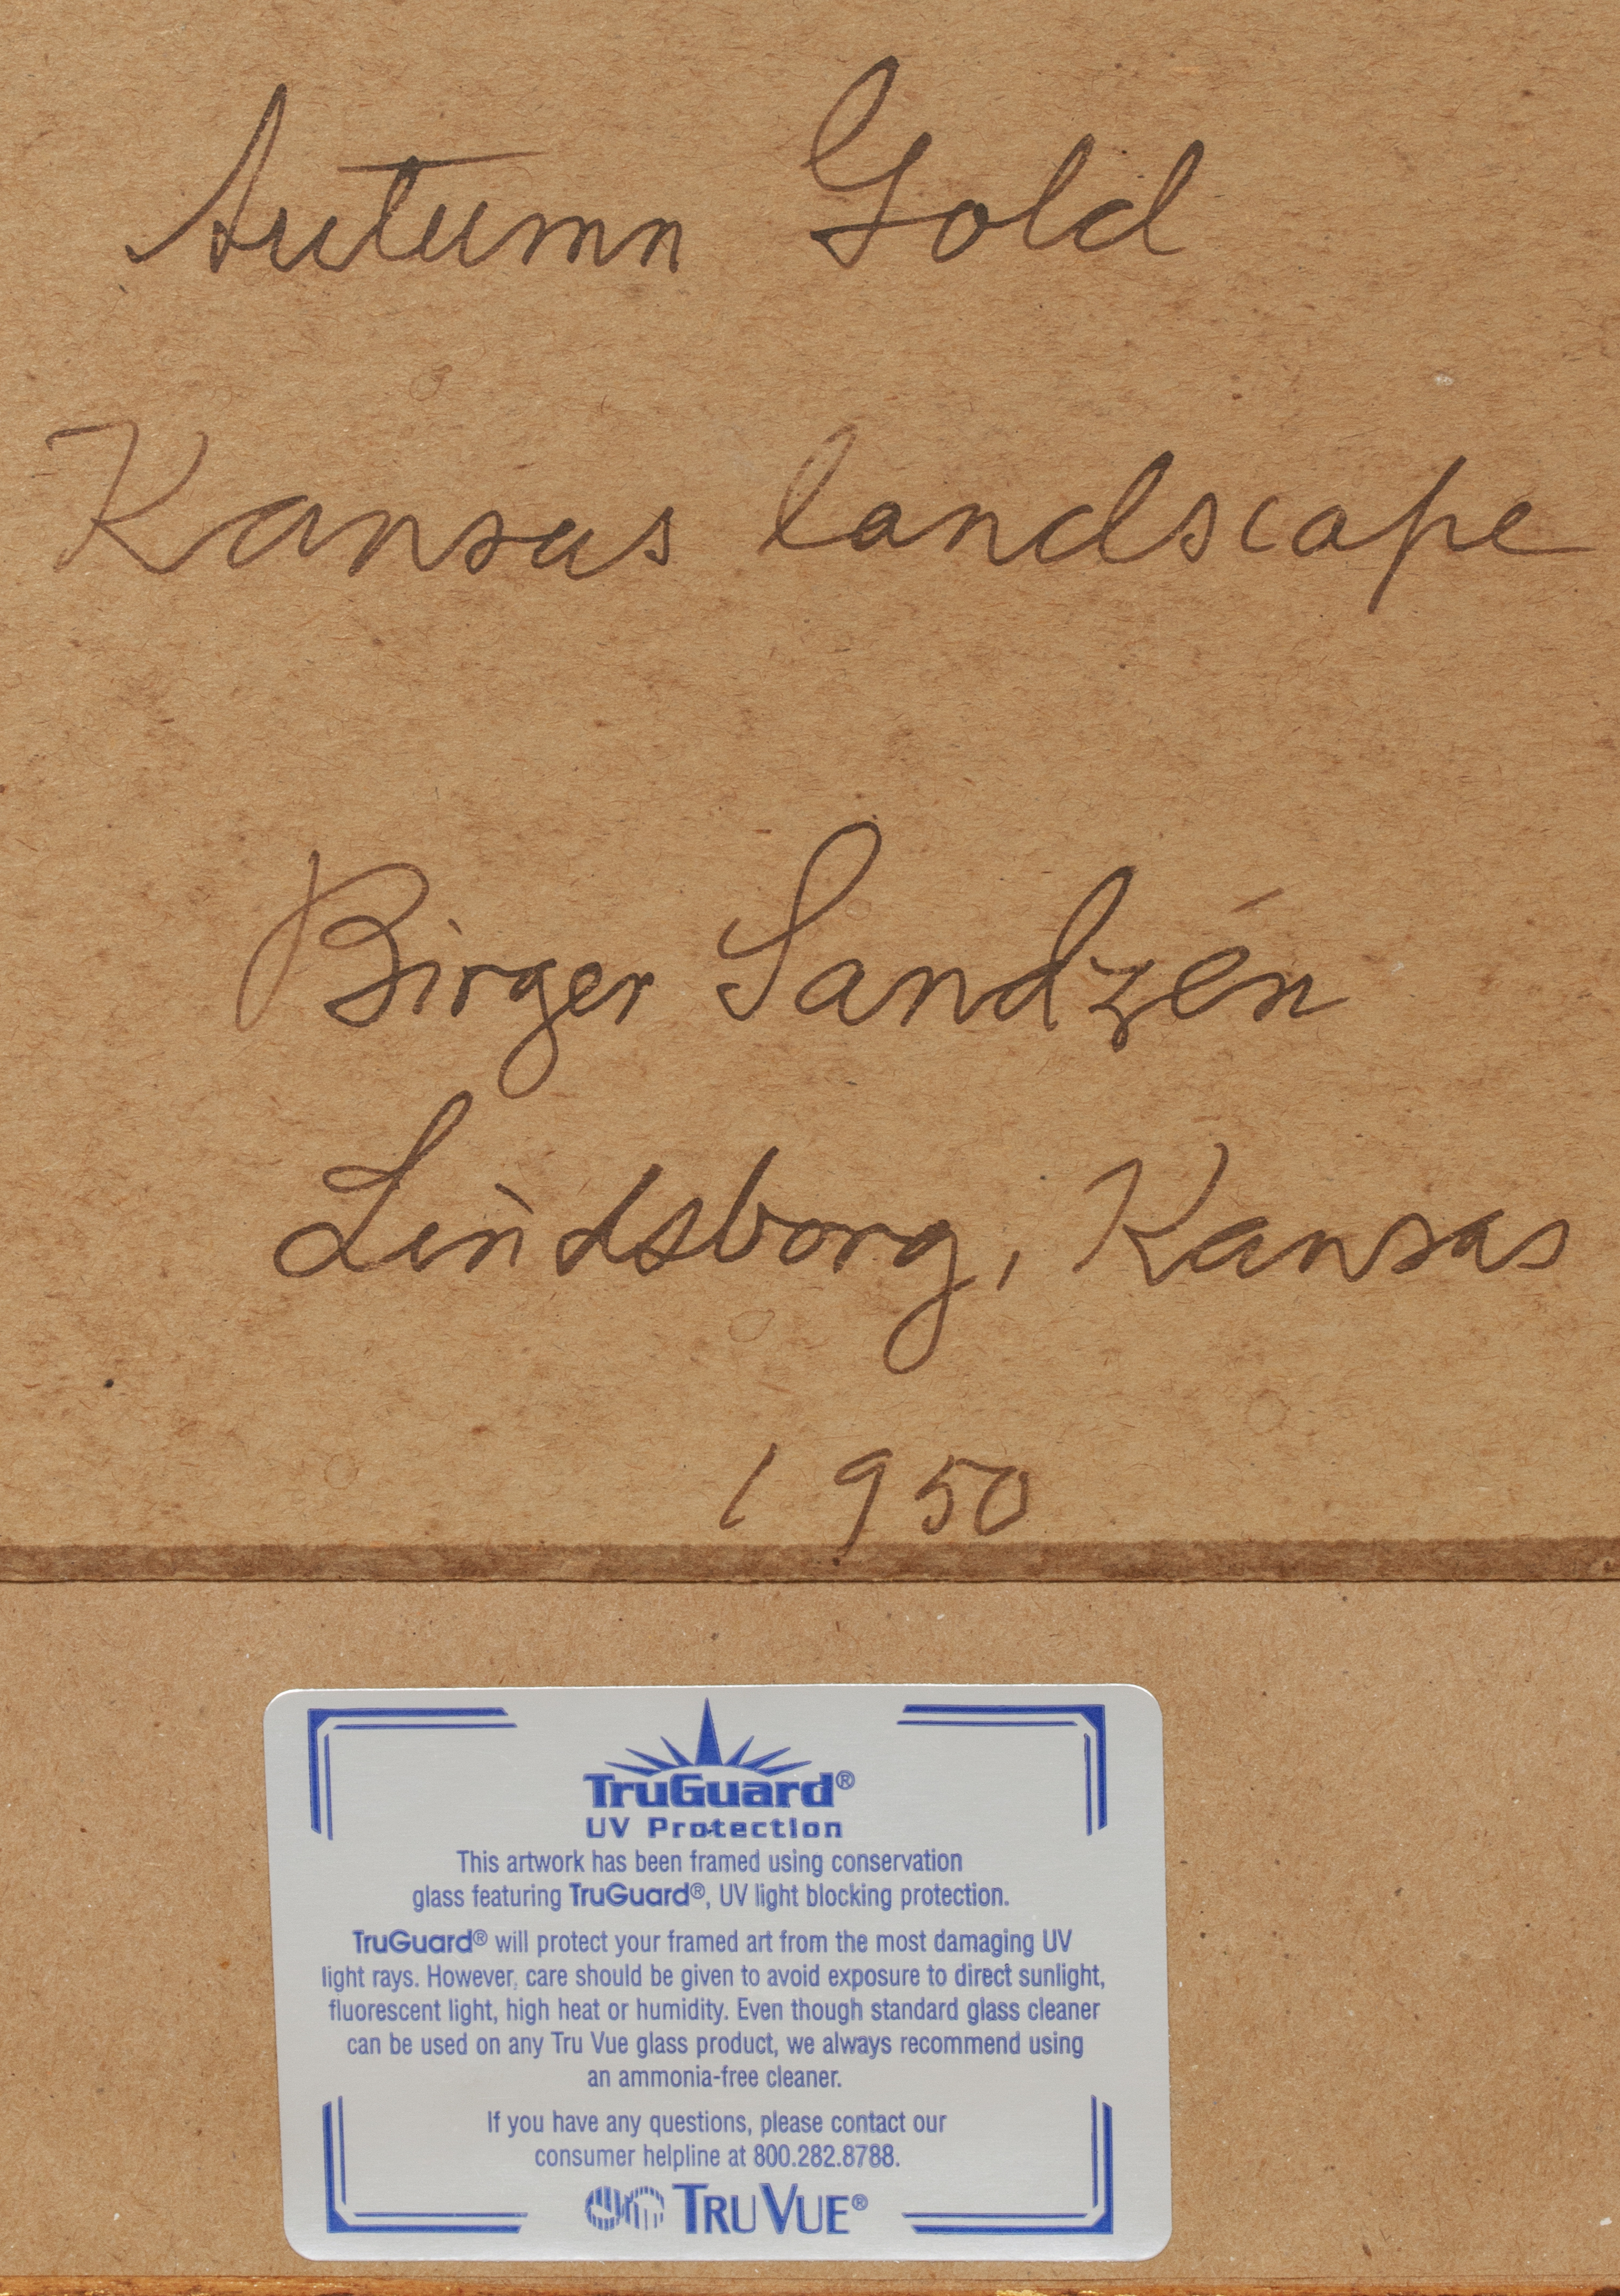 Autumn Gold
Kansas landscape
Birger Sandzén
Lindsborg, Kansas
1950
TruGuard®
UV Protection
This artwork has been framed using conservation
glass featuring TruGuard®, UV light blocking protection.
TruGuard® will protect your framed art from the most damaging UV
light rays. However, care should be given to avoid exposure to direct sunlight,
fluorescent light, high heat or humidity. Even though standard glass cleaner
can be used on any Tru Vue glass product, we always recommend using
an ammonia-free cleaner.
If you have any questions, please contact our
consumer helpline at 800.282.8788.
TRU VUE®